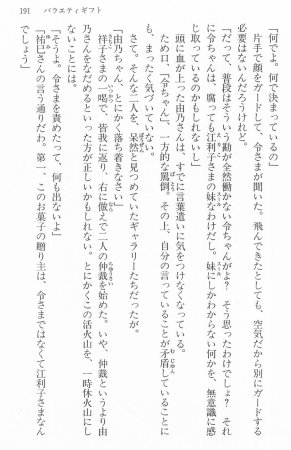 191 バラエティギフト
「何でよ。何で決まっているの」
片手で顔をガードして、令さまが聞いた。飛んできたとしても、空気だから別にガードする
必要はないんだろうけれど。
「だって、普段はそういう勘が全然働かない令ちゃんがよ? そう思ったわけでしょ? それ
に令ちゃんは、腐っても江利子さまの妹なわけだし。妹にしかわからない何かを、無意識に感
じているのかもしれないし」
頭に血が上った由乃さんは、すでに言葉遣いに気をつけなくなっている。
ため口、「令ちゃん」、一方的な罵倒。その上、自分の言っていることが矛盾していることに
も、まったく気づいていない。
さて、そんな二人を、呆然と見つめていたギャラリーたちだったが。
「由乃ちゃん、とにかく落ち着きなさい」
祥子さまの一喝で、皆我に返り、右に倣えで二人の仲裁を始めた。いや、仲裁というより由
乃さんをなだめるといった方が正しいかもしれない。とにかくこの活火山を、一時休火山にし
ないことには。
「そうよ。令さまを責めたって、何も出ないよ」
「祐巳さんの言う通りだわ。第一、このお菓子の贈り主は、令さまではなくて江利子さまなん
でしょう」